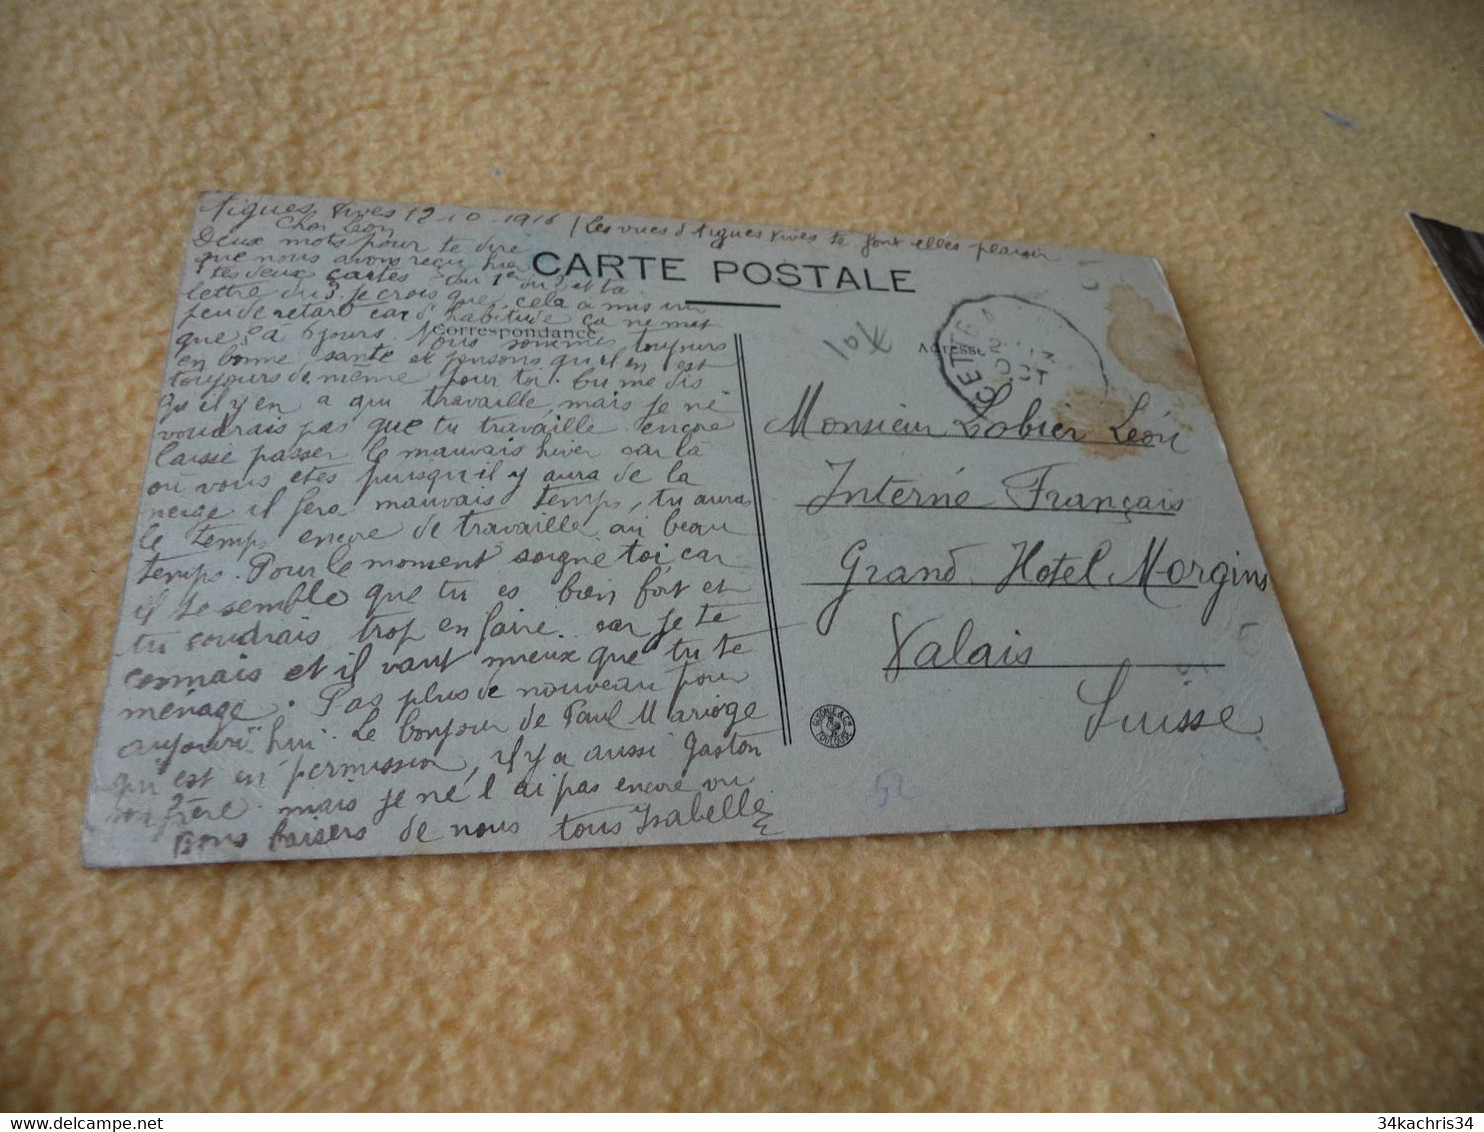 Aigues Vives 12-10-1916 / Les vues d'Aigues Vives te font elles plaisir
Cher Léon
Deux mots pour te dire
que nous avons reçu hier
tes deux cartes du 1er du 2 et ta
lettre du 3. je crois que cela a mis un
peu de retard car d'habitude ça ne met
que 5 à 6 jours. Nous sommes toujours
en bonne santé et pensons qu'il en est
toujours de même pour toi. tu me dis
qu'il y en a qui travaille, mais je ne
voudrais pas que tu travaille encore
laisse passer le mauvais hiver car là
ou vous êtes puisqu'il y aura de la
neige il fera mauvais temps, tu auras
le temps encore de travaille au beau
temps. Pour le moment soigne toi, car
il te semble que tu es bien fort et
tu voudrais trop en faire. car je te
connais et il vaut mieux que tu te
ménage. Pas plus de nouveau pour
aujourd'hui. Le bonjour de Paul Mariòge
qui est en permission, il y a aussi Gaston
son frère mais je ne l'ai pas encore vu.
Bons baisers de nous tous Isabelle
CARTE POSTALE
Correspondance
Adresse
CETTE A
OCT
101
Monsieur Lobier Léon
Interné Français
Grand Hotel Morgins
Valais
Suisse
TOULOUSE
52
34kachris34